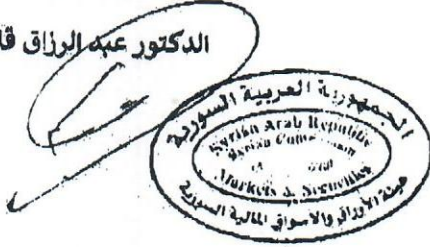 الدكتور عبد الرزاق
الجمهورية العربية السورية
Syrian Arab Republic
Syrian
Markets & Securities
هيئة الأوراق والأسواق المالية السورية